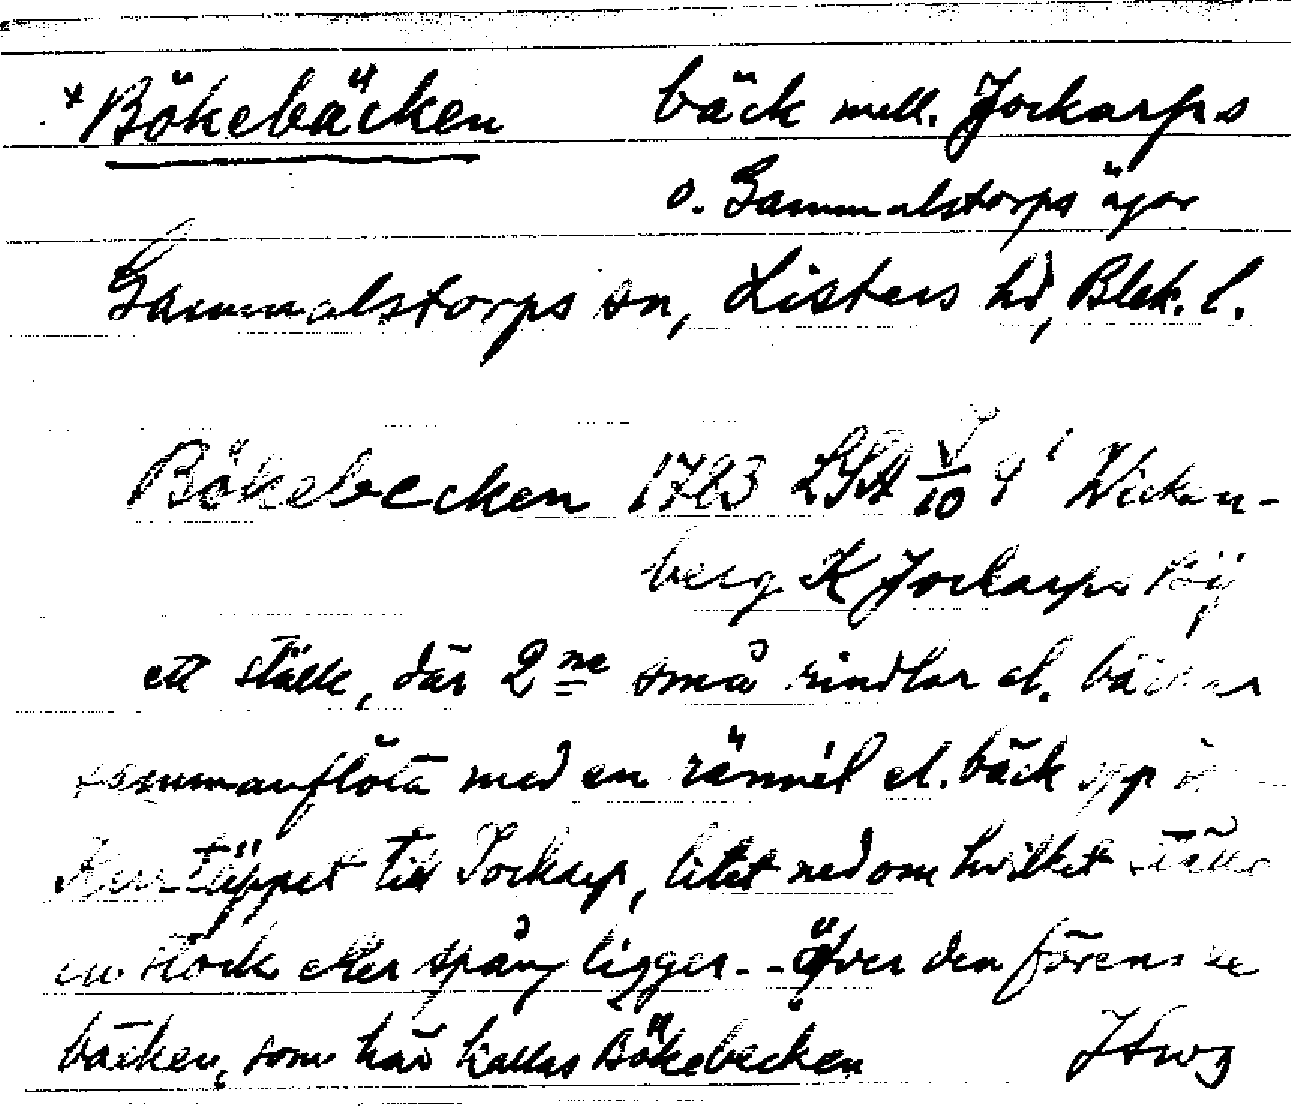 *Bökebäcken bäck mell. Jockarps
o. Gammalstorps ägor
Gammalstorps sn, Listers hd, Blek. l.
Bökebecken 1723 LSA 10 4' Wicken-
berg K Jockarps Bÿ
ett ställe, där 2ne små rindlar el. bäckar
sammanflöta med en rännil el. bäck upp
täppet till Jockarp, litet nedom hvilket ställe
en stock eller spång ligger -- öfver den förenade
bäcken, som här kallas Bökebecken